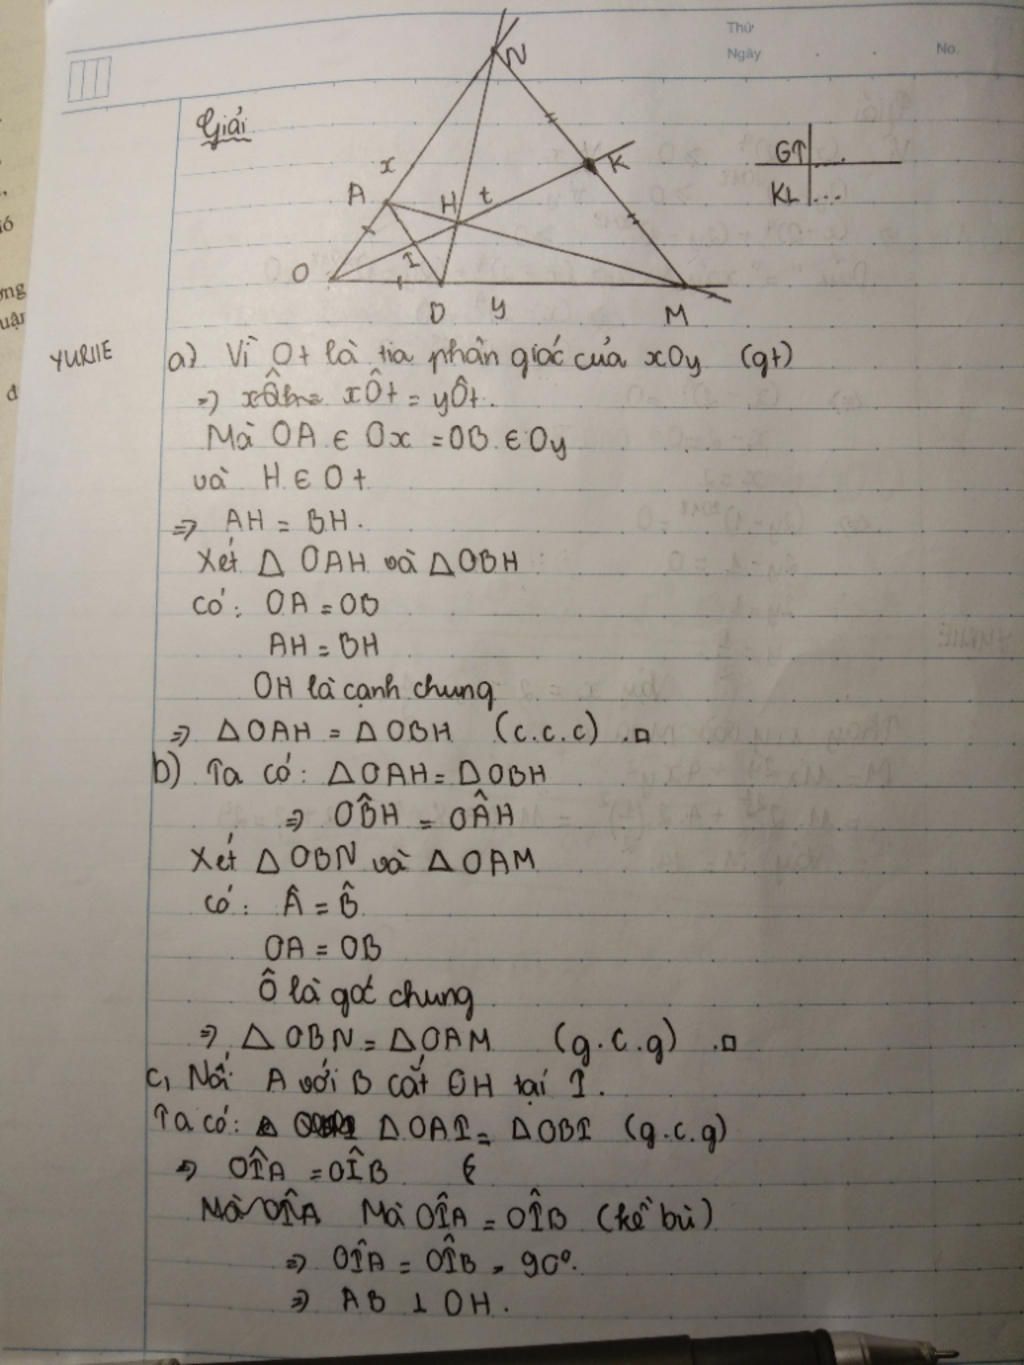 Thứ
Ngày
No.
Giải
N
x
A
H
t
K
I
O
D
y
M
GT ...
KL ...
YURIIE
a) Vì Ot là tia phân giác của xOy (gt)
=> xÔt = yÔt.
Mà OA ∈ Ox = OB ∈ Oy
và H ∈ Ot
=> AH = BH.
Xét △ OAH và △OBH
có: OA = OB
AH = BH
OH là cạnh chung
=> △OAH = △OBH (c.c.c) .□
b) Ta có: △OAH = △OBH
=> OB̂H = OÂH
Xét △OBN và △OAM
có: Â = B̂
OA = OB
Ô là góc chung
=> △ OBN = △OAM (g.c.g) .□
c, Nối A với B cắt OH tại I.
Ta có: △OAI = △OBI (g.c.g)
=> OÎA = OÎB
Mà OÎA Mà OÎA = OÎB (kề bù)
=> OÎA = OÎB = 90°.
=> AB ⊥ OH.
ng
uận
đ